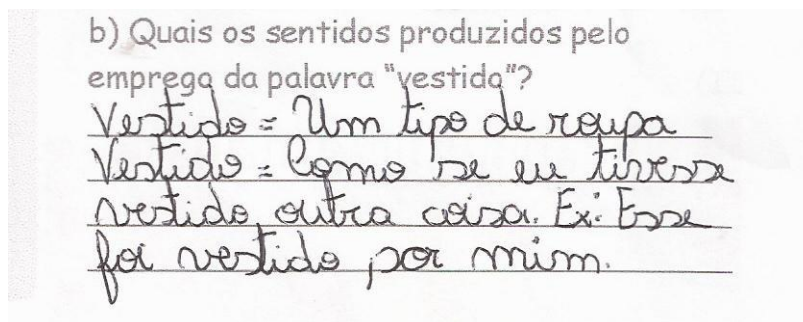 b) Quais os sentidos produzidos pelo
emprego da palavra "vestido"?
Vestido = Um tipo de roupa
Vestido = Como se eu tivesse
vestido outra coisa. Ex: Esse
foi vestido por mim.